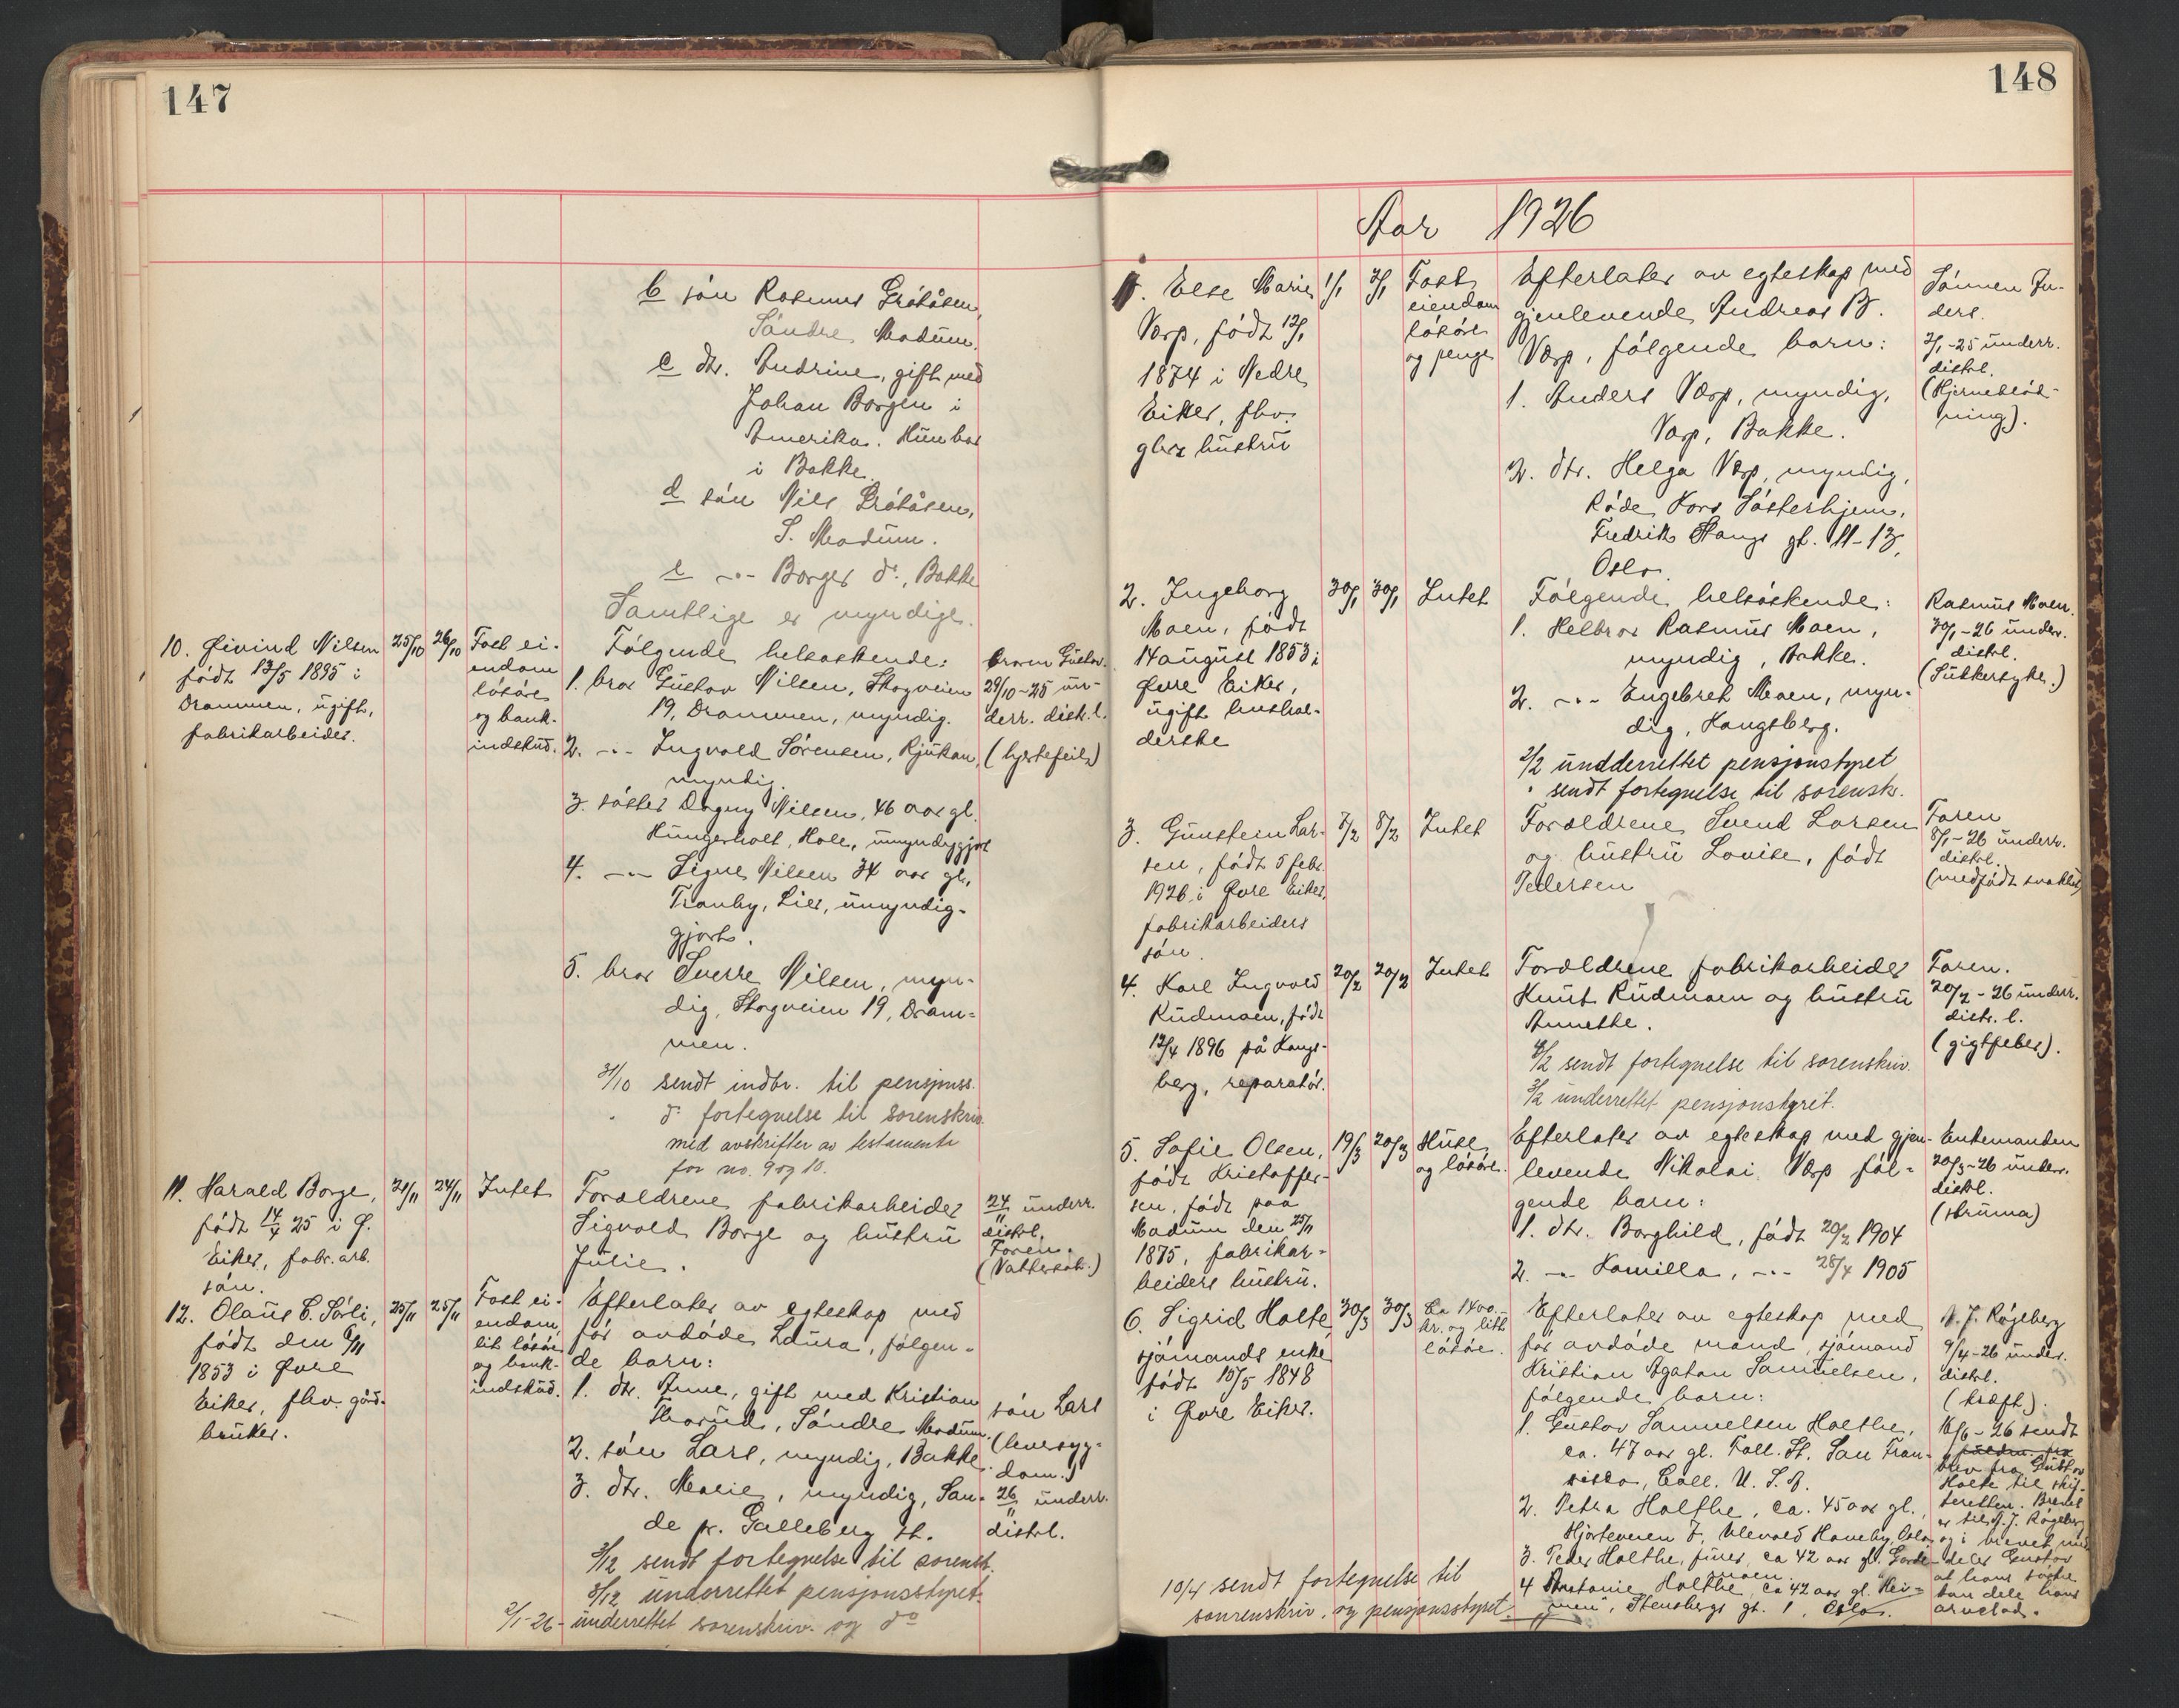 147
b søn Rasmus Gråtåsen,
Søndre Modum.
c dtr. Andrine, gift med
Johan Borgen i
Amerika. Hun bor
i Bakke.
d søn Nils Gråtåsen,
S. Modum.
e -"- Borger do., Bakke
Samtlige er myndige.
10. Øivind Nilsen
født 13/5 1895 i
Drammen, ugift,
fabrikarbeider.
25/10
26/10
Fast ei-
endom
løsøre
og bank-
indskud.
Følgende helsøskende:
1. bror Gustav Nilsen, Skogveien
19, Drammen, myndig.
2. -"- Ingvald Sørensen, Rjukan,
myndig.
3. søster Dagny Nilsen, 46 aar gl.
Hungerholt, Hole, umyndiggjort
4. -"- Signe Nilsen 34 aar gl.,
Tranby, Lier, umyndig-
gjort.
5. bror Sverre Nilsen, myn-
dig, Skogveien 19, Dram-
men.
31/10 sendt indbr. til pensjonss.
" do fortegnelse til sorenskriv.
med avskrifter av testamente
for no. 9 og 10.
broren Gustav.
29/10-25 un-
derr. distr. l.
(hjertefeil)
11. Harald Borge,
født 14/4 25 i Ø.
Eiker, fabr. arb.
søn.
21/11
24/11
Intet
Forældrene fabrikarbeider
Sigvald Borge og hustru
Julie.
24/11 underr.
distr.l.
Faren.
12. Olaus C. Sørli,
født den 6/11
1853 i Øvre
Eiker, fhv. gård-
bruker.
25/11
25/11
Fast ei-
endom,
lit løsøre
og bank-
indskud.
Efterlater av egteskap med
før avdøde Laura, følgen-
de barn:
1. dtr. Anne, gift med Kristian
Thorud, Søndre Modum.
2. søn Lars, myndig, Bakke
3. dtr. Marie, myndig, San-
de pr. Galleberg st.
3/12 sendt fortegnelse til sorensk.
3/12 underrettet pensjonsstyret.
2/1-26 - underrettet sorenskriv. og do
søn Lars
(leversyg-
dom.)
26/11 underr.
distr.l.
148
Aar 1926
1. Else Marie
Varp, født 12/1
1874 i Nedre
Eiker, fhv.
glvz hustru
1/1
2/1
Fast
eiendom
løsøre
og penge
Efterlater av egteskap med
gjenlevende Andreas B.
Varp, følgende barn:
1. Anders Varp, myndig,
Varp, Bakke.
2. dtr. Helga Varp, myndig,
Røde Kors Søsterhjem,
Fredrik Stangs gt. 11-13,
Oslo.
Sønnen An-
ders.
2/1-25 underr.
distr.l.
(Hjerneblød-
ning).
2. Ingeborg
Moen, født
14 august 1853 i
Øvre Eiker,
ugift hushol-
derske
30/1
30/1
Intet
Følgende helsøskende:
1. Helbror Rasmus Moen,
myndig, Bakke.
2. -"- Engebret Moen, myn-
dig, Kongsberg.
2/2 undderrettet pensjonstyret
" sendt fortegnelse til sorensk.
Rasmus Moen.
30/1-26 underr.
distr.l.
(Sukkersyke.)
3. Gunstein Lar-
sen, født 5 febr.
1926 i Øvre Eiker,
fabrikarbeiders
søn.
7/2
8/2
Intet
Forældrene Svend Larsen
og hustru Lovise, født
Pedersen
Faren
8/1-26 underr.
distr.l.
(medfødt svakhet)
4. Karl Ingvald
Rudmoen, født
12/4 1896 på Kongs-
berg, reparatør.
20/2
20/2
Intet
Forældrene fabrikarbeider
Knut Rudmoen og hustru
Annette.
sendt fortegnelse til sorenskriv.
underrettet pensjonstyret.
Faren.
20/2-26 underr.
distr. l.
(gigtfeber).
5. Sofie Olsen,
født Kristoffer-
sen, født paa
Modum den 25/11
1875, fabrikar-
beiders hustru.
19/3
20/3
Huse
og løsøre.
Efterlater av egteskap med gjen-
levende Nikolai Varp føl-
gende barn:
1. dtr. Borghild, født 20/2 1904
2. -"- Kamilla, -"- 28/4 1905
Enkemanden
20/3-26 underr.
distr.l.
(struma)
6. Sigrid Holte,
sjømands enke
født 15/5 1848
i Øvre Eiker.
30/3
30/3
Ca 1400
kr. og litt
løsøre.
Efterlater av egteskap med
før avdøde mand, sjømand
Kristian Agaton Samuelsen,
følgende barn:
1. Gustav Samuelsen Holthe,
ca. 47 aar gl. Fall. St. San Fran-
sisko, Call. U. S. A.
2. Petra Holthe, ca. 45 aar gl.,
Hjorteveien 7, Ulevold Haveby, Oslo
3. Peder Holthe, ca 42 aar gl. Gorde-
moen.
4 Antonie Holthe, ca 42 aar gl. "Hei-
men", Stensbergs gt. 1, Oslo.
10/4 sendt fortegnelse til
sorenskriv. og pensjonsstyret.
A. J. Røgeberg
9/4-26 underr.
distr.l.
(kræft).
16/6-26 sendt
brev fra Gustav
Holte til skif-
teretten. Brevet
er til A. J. Røgeberg
og i brevet med-
deler Gustav
at hans søstre
kan dele hans
arvelod.